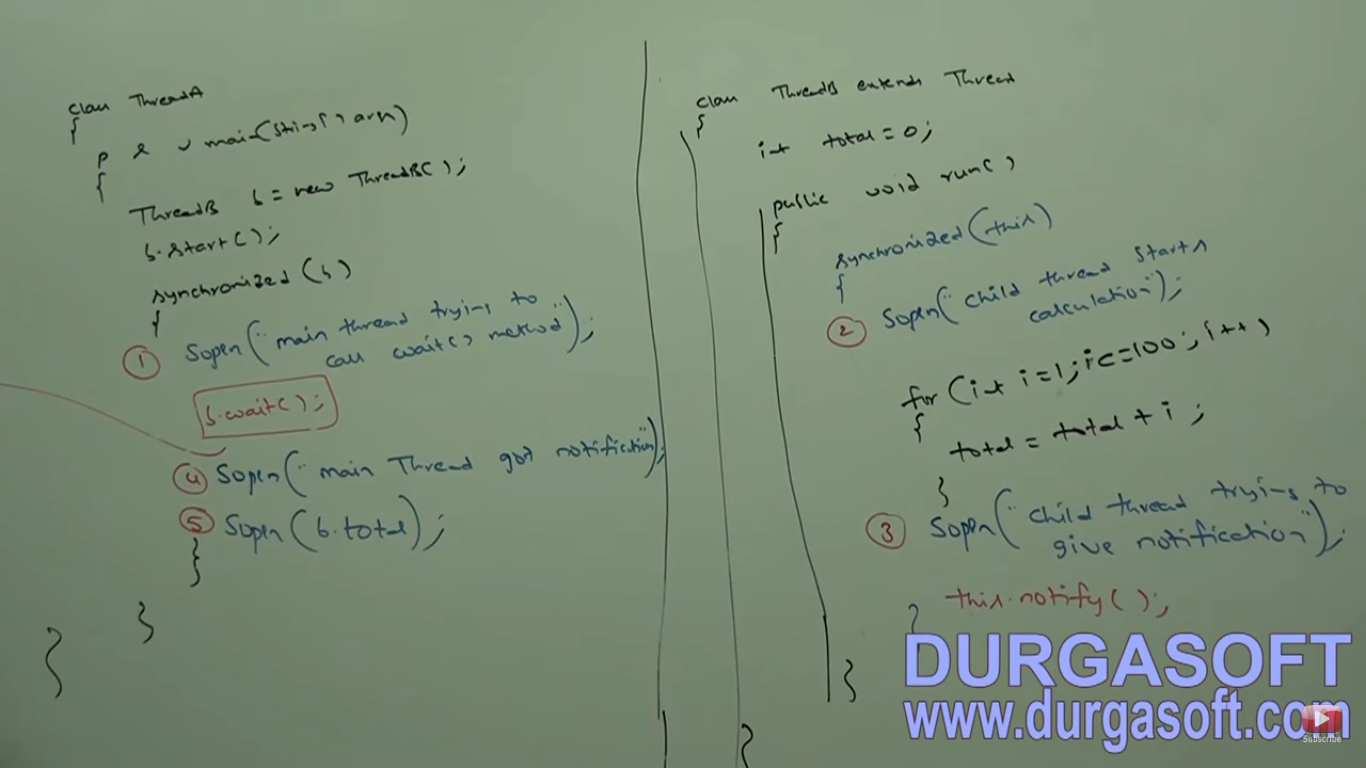 class ThreadA
{
p s v main(String[] args)
{
ThreadB b = new ThreadB();
b.start();
synchronized (b)
{
① Sopln("main thread trying to
call wait() method");
b.wait();
④ Sopln("main Thread got notification");
⑤ Sopln(b.total);
}
}
}
class ThreadB extends Thread
{
int total = 0;
public void run()
{
synchronized (this)
{
② Sopln("child thread starts
calculation");
for (int i=1; i<=100; i++)
{
total = total + i;
}
③ Sopln("child thread trying to
give notification");
this.notify();
}
}
}
DURGASOFT
www.durgasoft.com
Subscribe